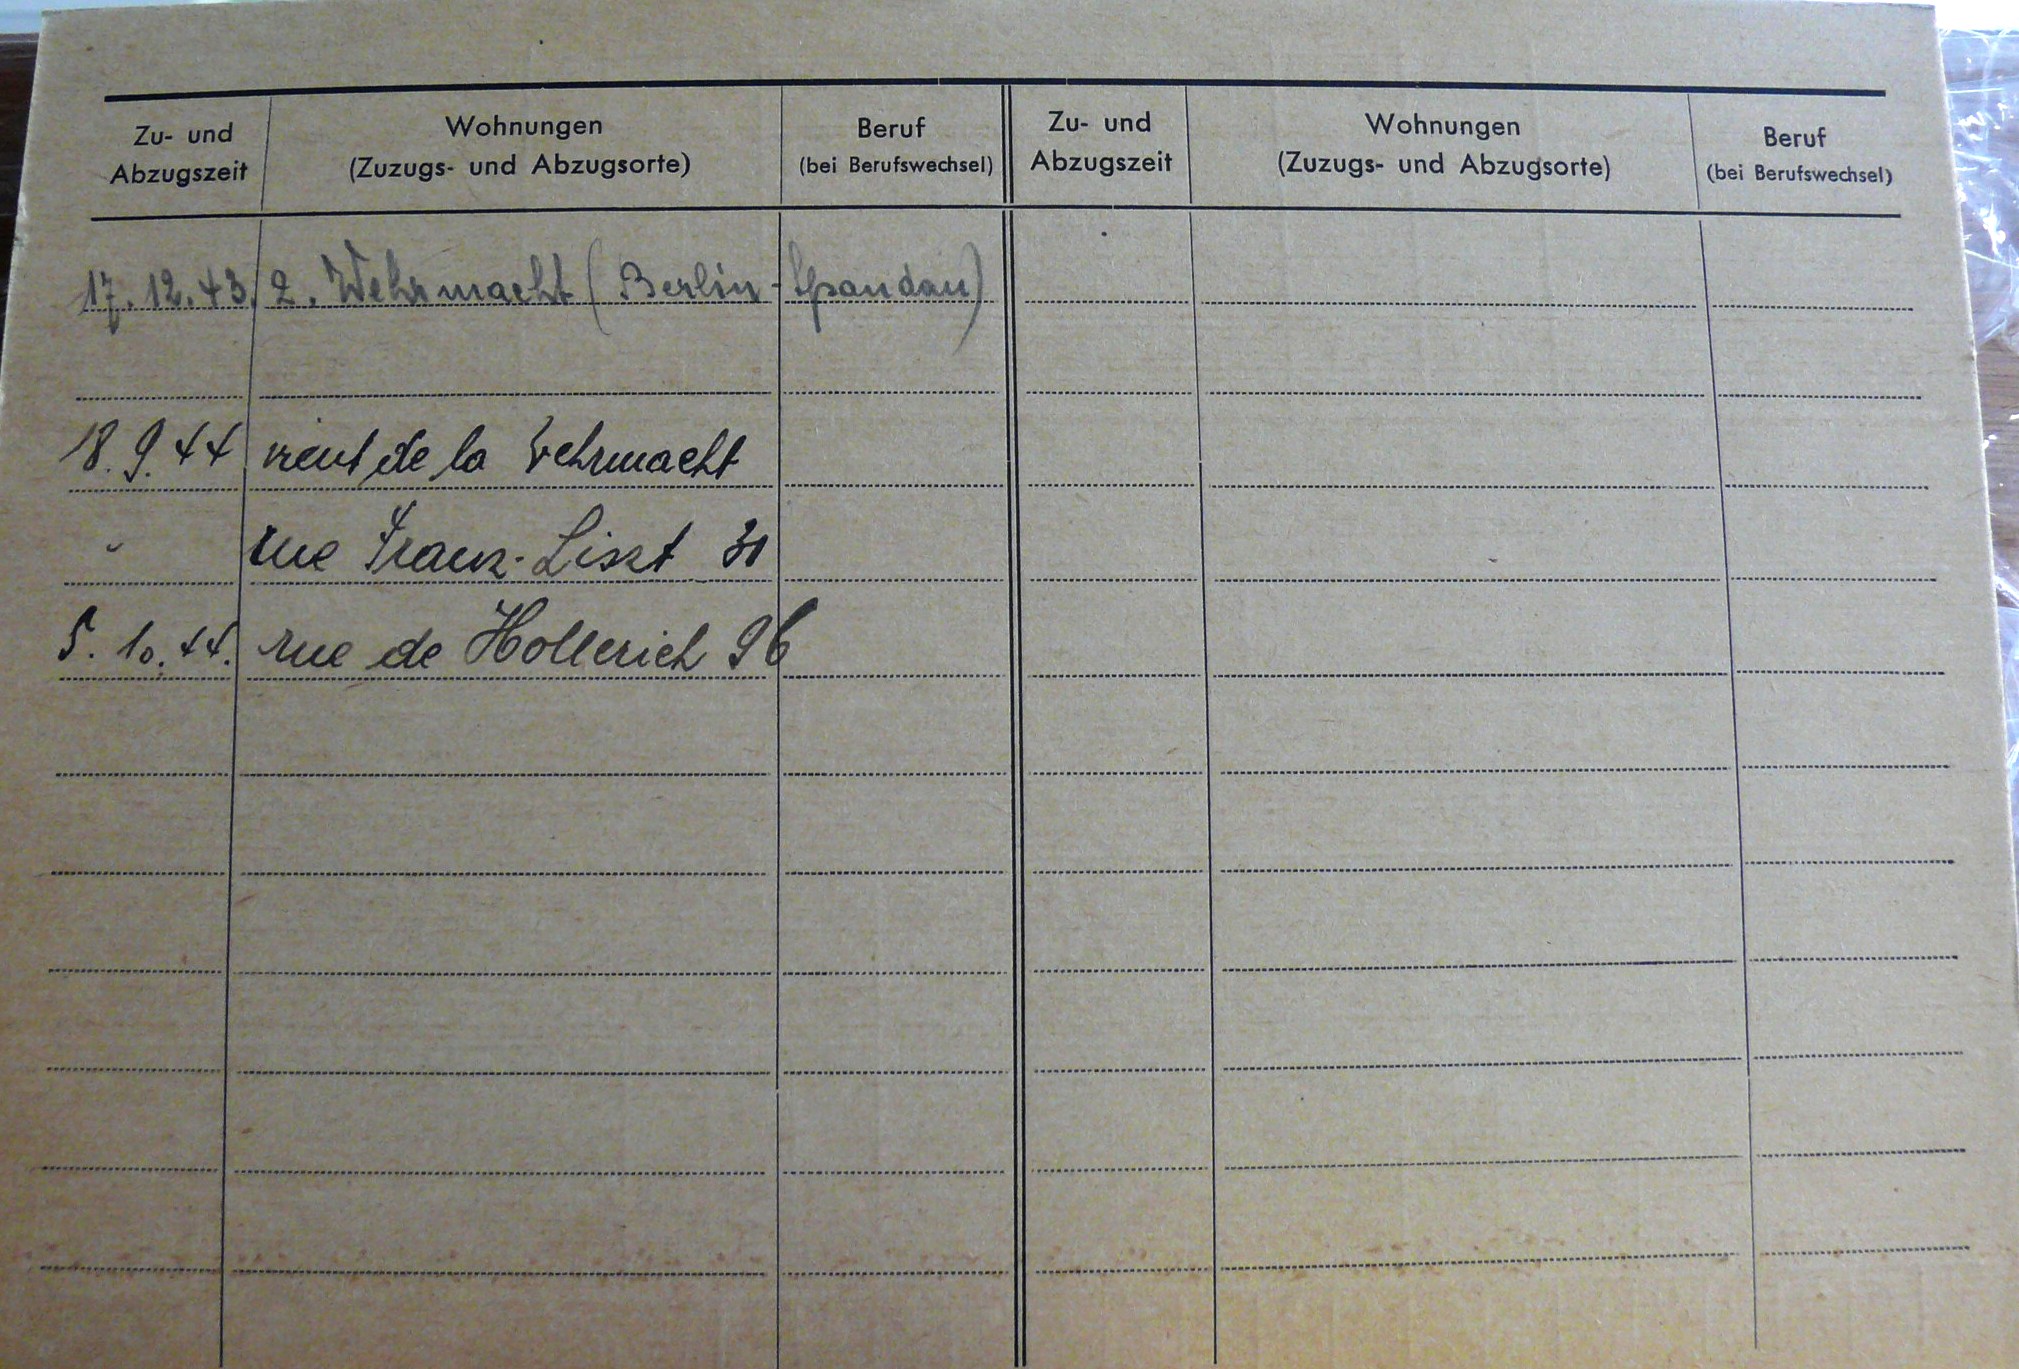 Zu- und Abzugszeit
Wohnungen (Zuzugs- und Abzugsorte)
Beruf (bei Berufswechsel)
Zu- und Abzugszeit
Wohnungen (Zuzugs- und Abzugsorte)
Beruf (bei Berufswechsel)
17.12.43. z. Wehrmacht (Berlin-Spandau)
18.9.44 vient de la Wehrmacht
" rue Franz-Liszt
5.10.44. rue de Hollerich 96